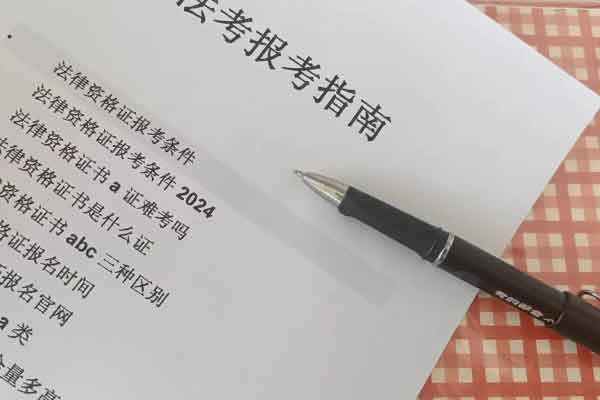 法考报考指南
法律资格证报考条件
法律资格证报考条件 2024
法律资格证书 a 证难考吗
法律资格证书是什么证
资格证书 abc 三种区别
格证报名时间
报名官网
a 类
含量多高